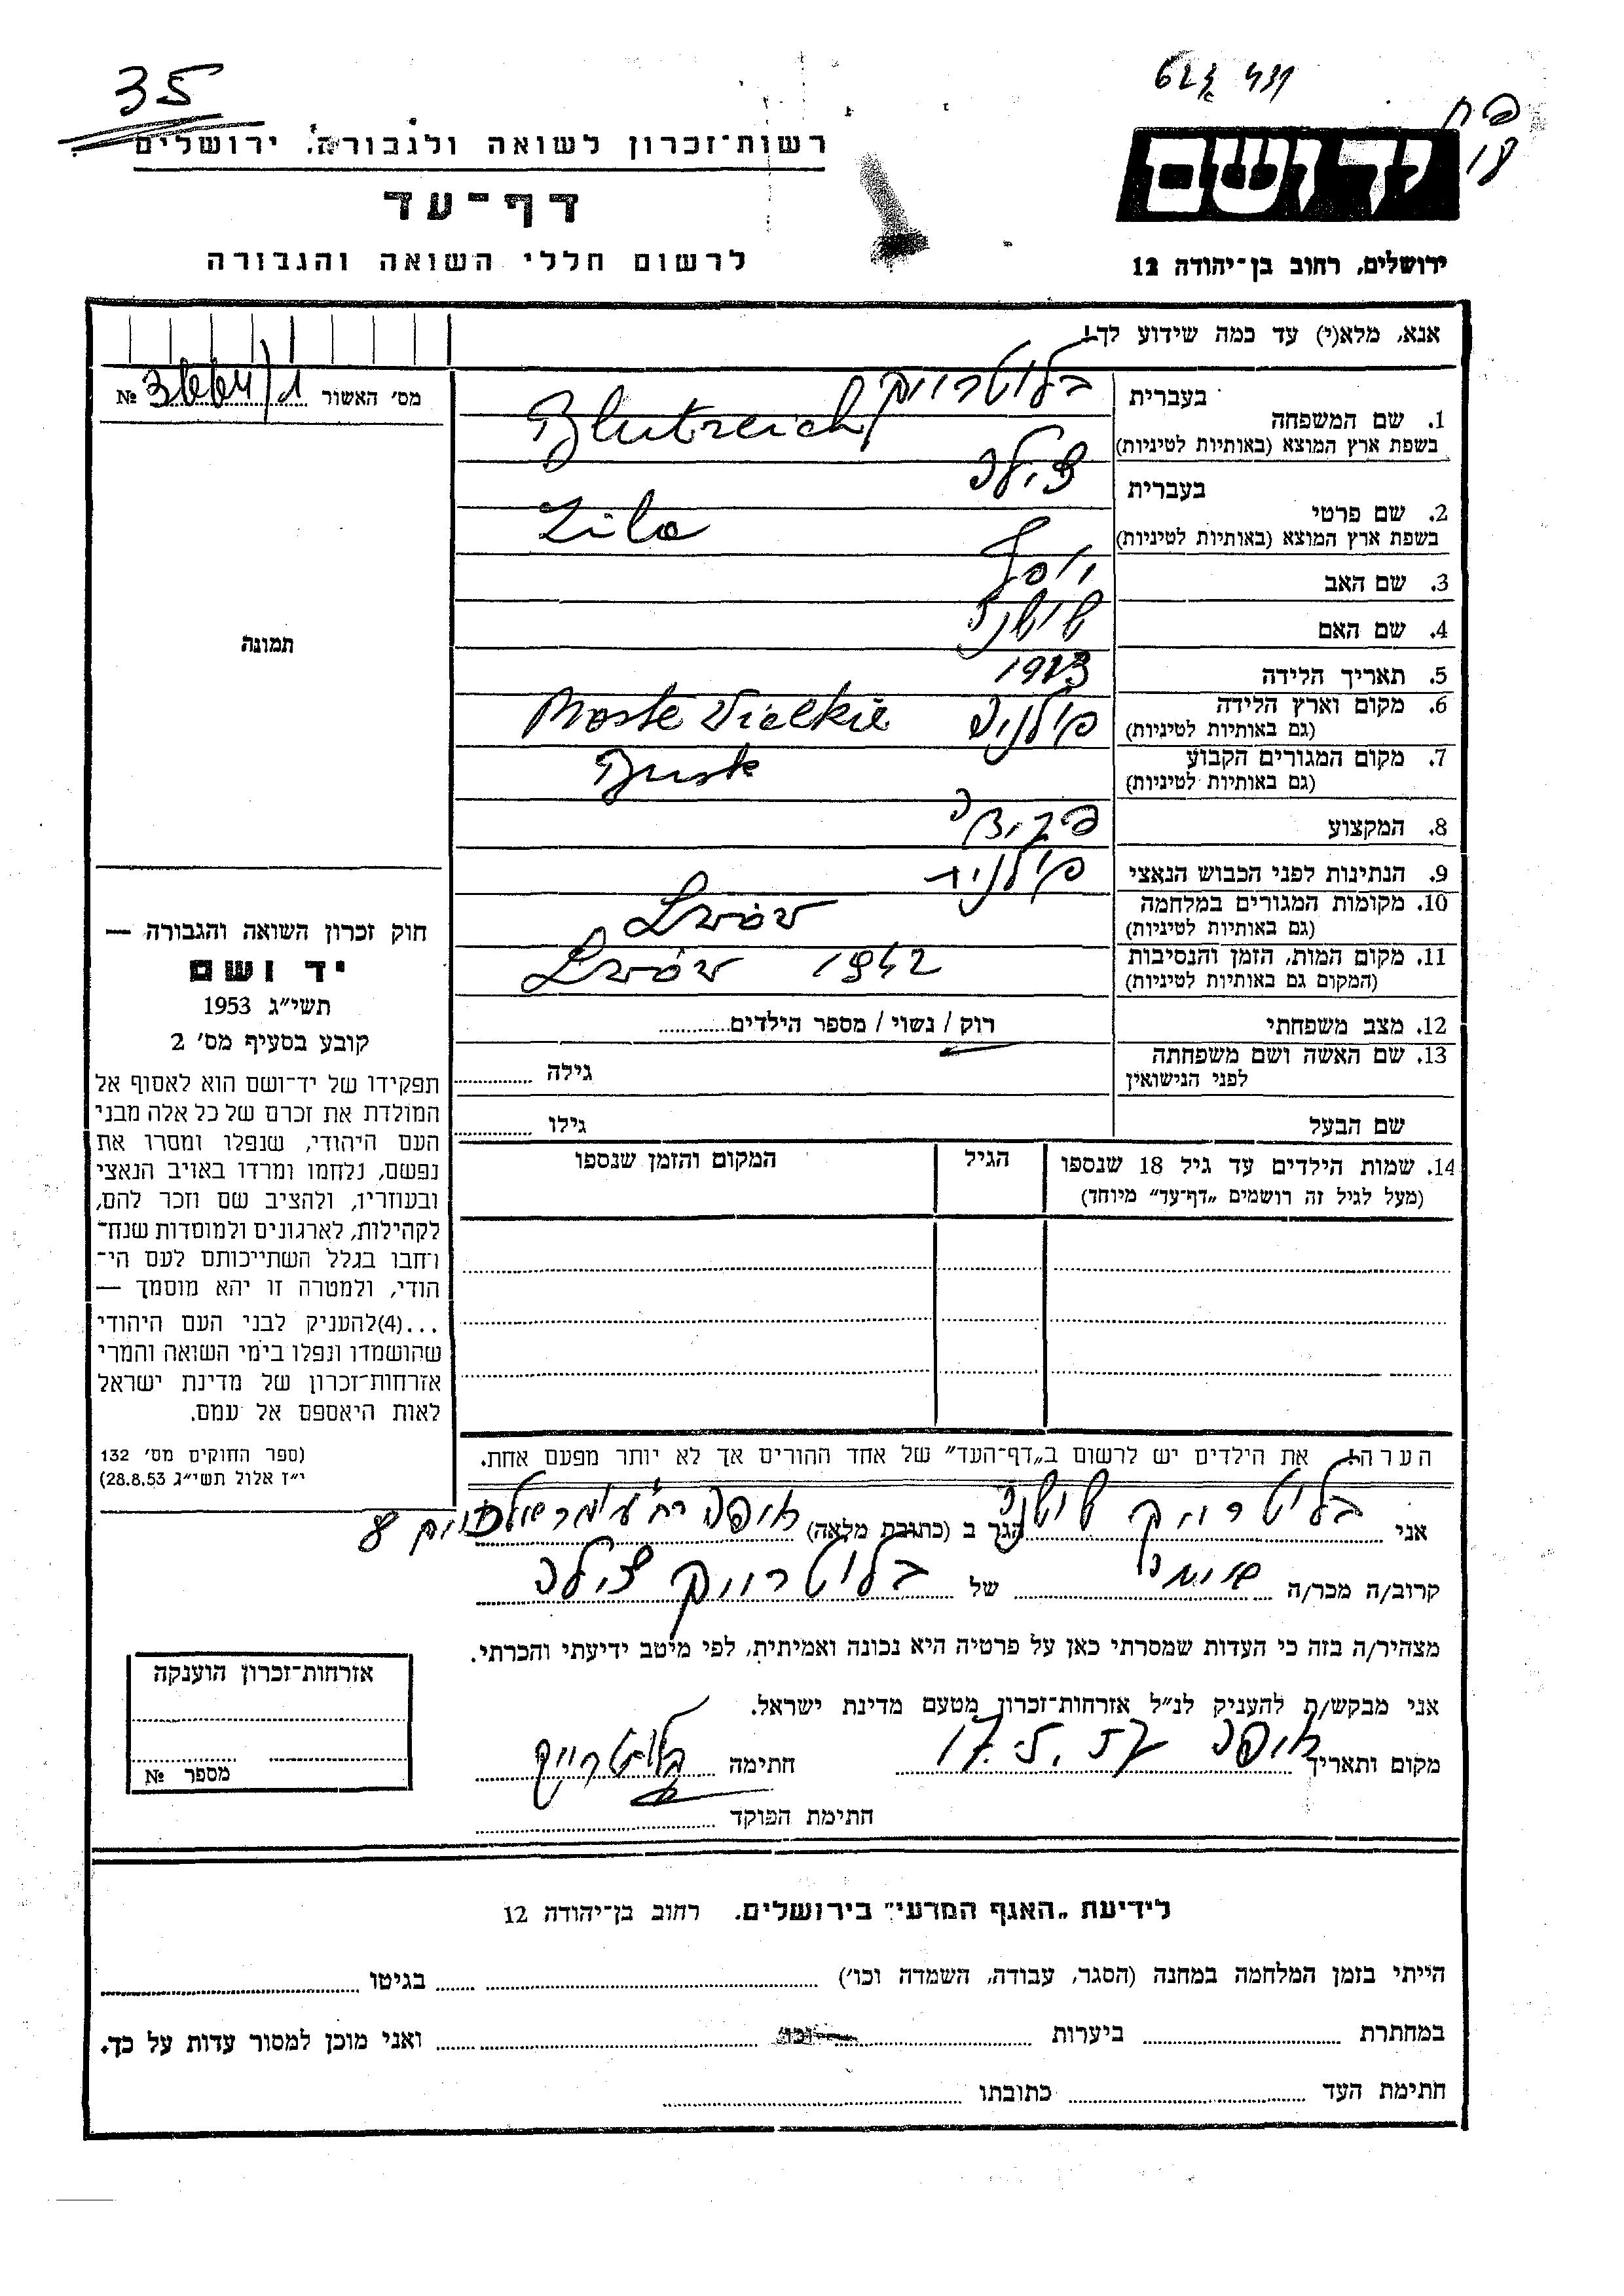 35
רשות־זכרון לשואה ולגבורה, ירושלים
דף־עד
לרשום חללי השואה והגבורה
יד ושם
ירושלים, רחוב בן־יהודה 12
אנא, מלא(י) עד כמה שידוע לך!
מס׳ האשור № 3664/1
בעברית בלוטרייך
1. שם המשפחה
בשפת ארץ המוצא (באותיות לטיניות) Blutreich
בעברית צילה
2. שם פרטי
בשפת ארץ המוצא (באותיות לטיניות) Zila
3. שם האב יוסף
4. שם האם
5. תאריך הלידה 1923
6. מקום וארץ הלידה פולניה Moste Vielkie
(גם באותיות לטיניות)
7. מקום המגורים הקבוע Busk
(גם באותיות לטיניות)
8. המקצוע פקידה
9. הנתינות לפני הכבוש הנאצי פולנית
10. מקומות המגורים במלחמה Lwów
(גם באותיות לטיניות)
11. מקום המות, הזמן והנסיבות Lwów 1942
(המקום גם באותיות לטיניות)
12. מצב משפחתי רוק / נשוי / מספר הילדים
13. שם האשה ושם משפחתה גילה
לפני הנישואין
שם הבעל גילו
14. שמות הילדים עד גיל 18 שנספו הגיל המקום והזמן שנספו
(מעל לגיל זה רושמים „דף־עד״ מיוחד)
תמונה
חוק זכרון השואה והגבורה —
יד ושם
תשי״ג 1953
קובע בסעיף מס׳ 2
תפקידו של יד־ושם הוא לאסוף אל
המולדת את זכרם של כל אלה מבני
העם היהודי, שנפלו ומסרו את
נפשם, נלחמו ומרדו באויב הנאצי
ובעוזריו, ולהציב שם וזכר להם,
לקהילות, לארגונים ולמוסדות שנח־
רחבו בגלל השתייכותם לעם הי־
הודי, ולמטרה זו יהא מוסמך —
...(4)להעניק לבני העם היהודי
שהושמדו ונפלו בימי השואה והמרי
אזרחות־זכרון של מדינת ישראל
לאות היאספם אל עמם.
(ספר החוקים מס׳ 132
י״ז אלול תשי״ג 28.8.53)
הערה! את הילדים יש לרשום ב„דף־העד״ של אחד ההורים אך לא יותר מפעם אחת.
אני בלוטרייך הגר ב (כתובת מלאה) חיפה
קרוב/ה מכר/ה של בלוטרייך צילה
מצהיר/ה בזה כי העדות שמסרתי כאן על פרטיה היא נכונה ואמיתית, לפי מיטב ידיעתי והכרתי.
אני מבקש/ת להעניק לנ״ל אזרחות־זכרון מטעם מדינת ישראל.
מקום ותאריך חיפה 17.5.57 חתימה בלוטרייך
חתימת הפוקד
אזרחות־זכרון הוענקה
מספר №
לידיעת „האגף המדעי״ בירושלים. רחוב בן־יהודה 12
הייתי בזמן המלחמה במחנה (הסגר, עבודה, השמדה וכו׳) בגיטו
במחתרת ביערות וכו׳ ואני מוכן למסור עדות על כך.
חתימת העד כתובתו